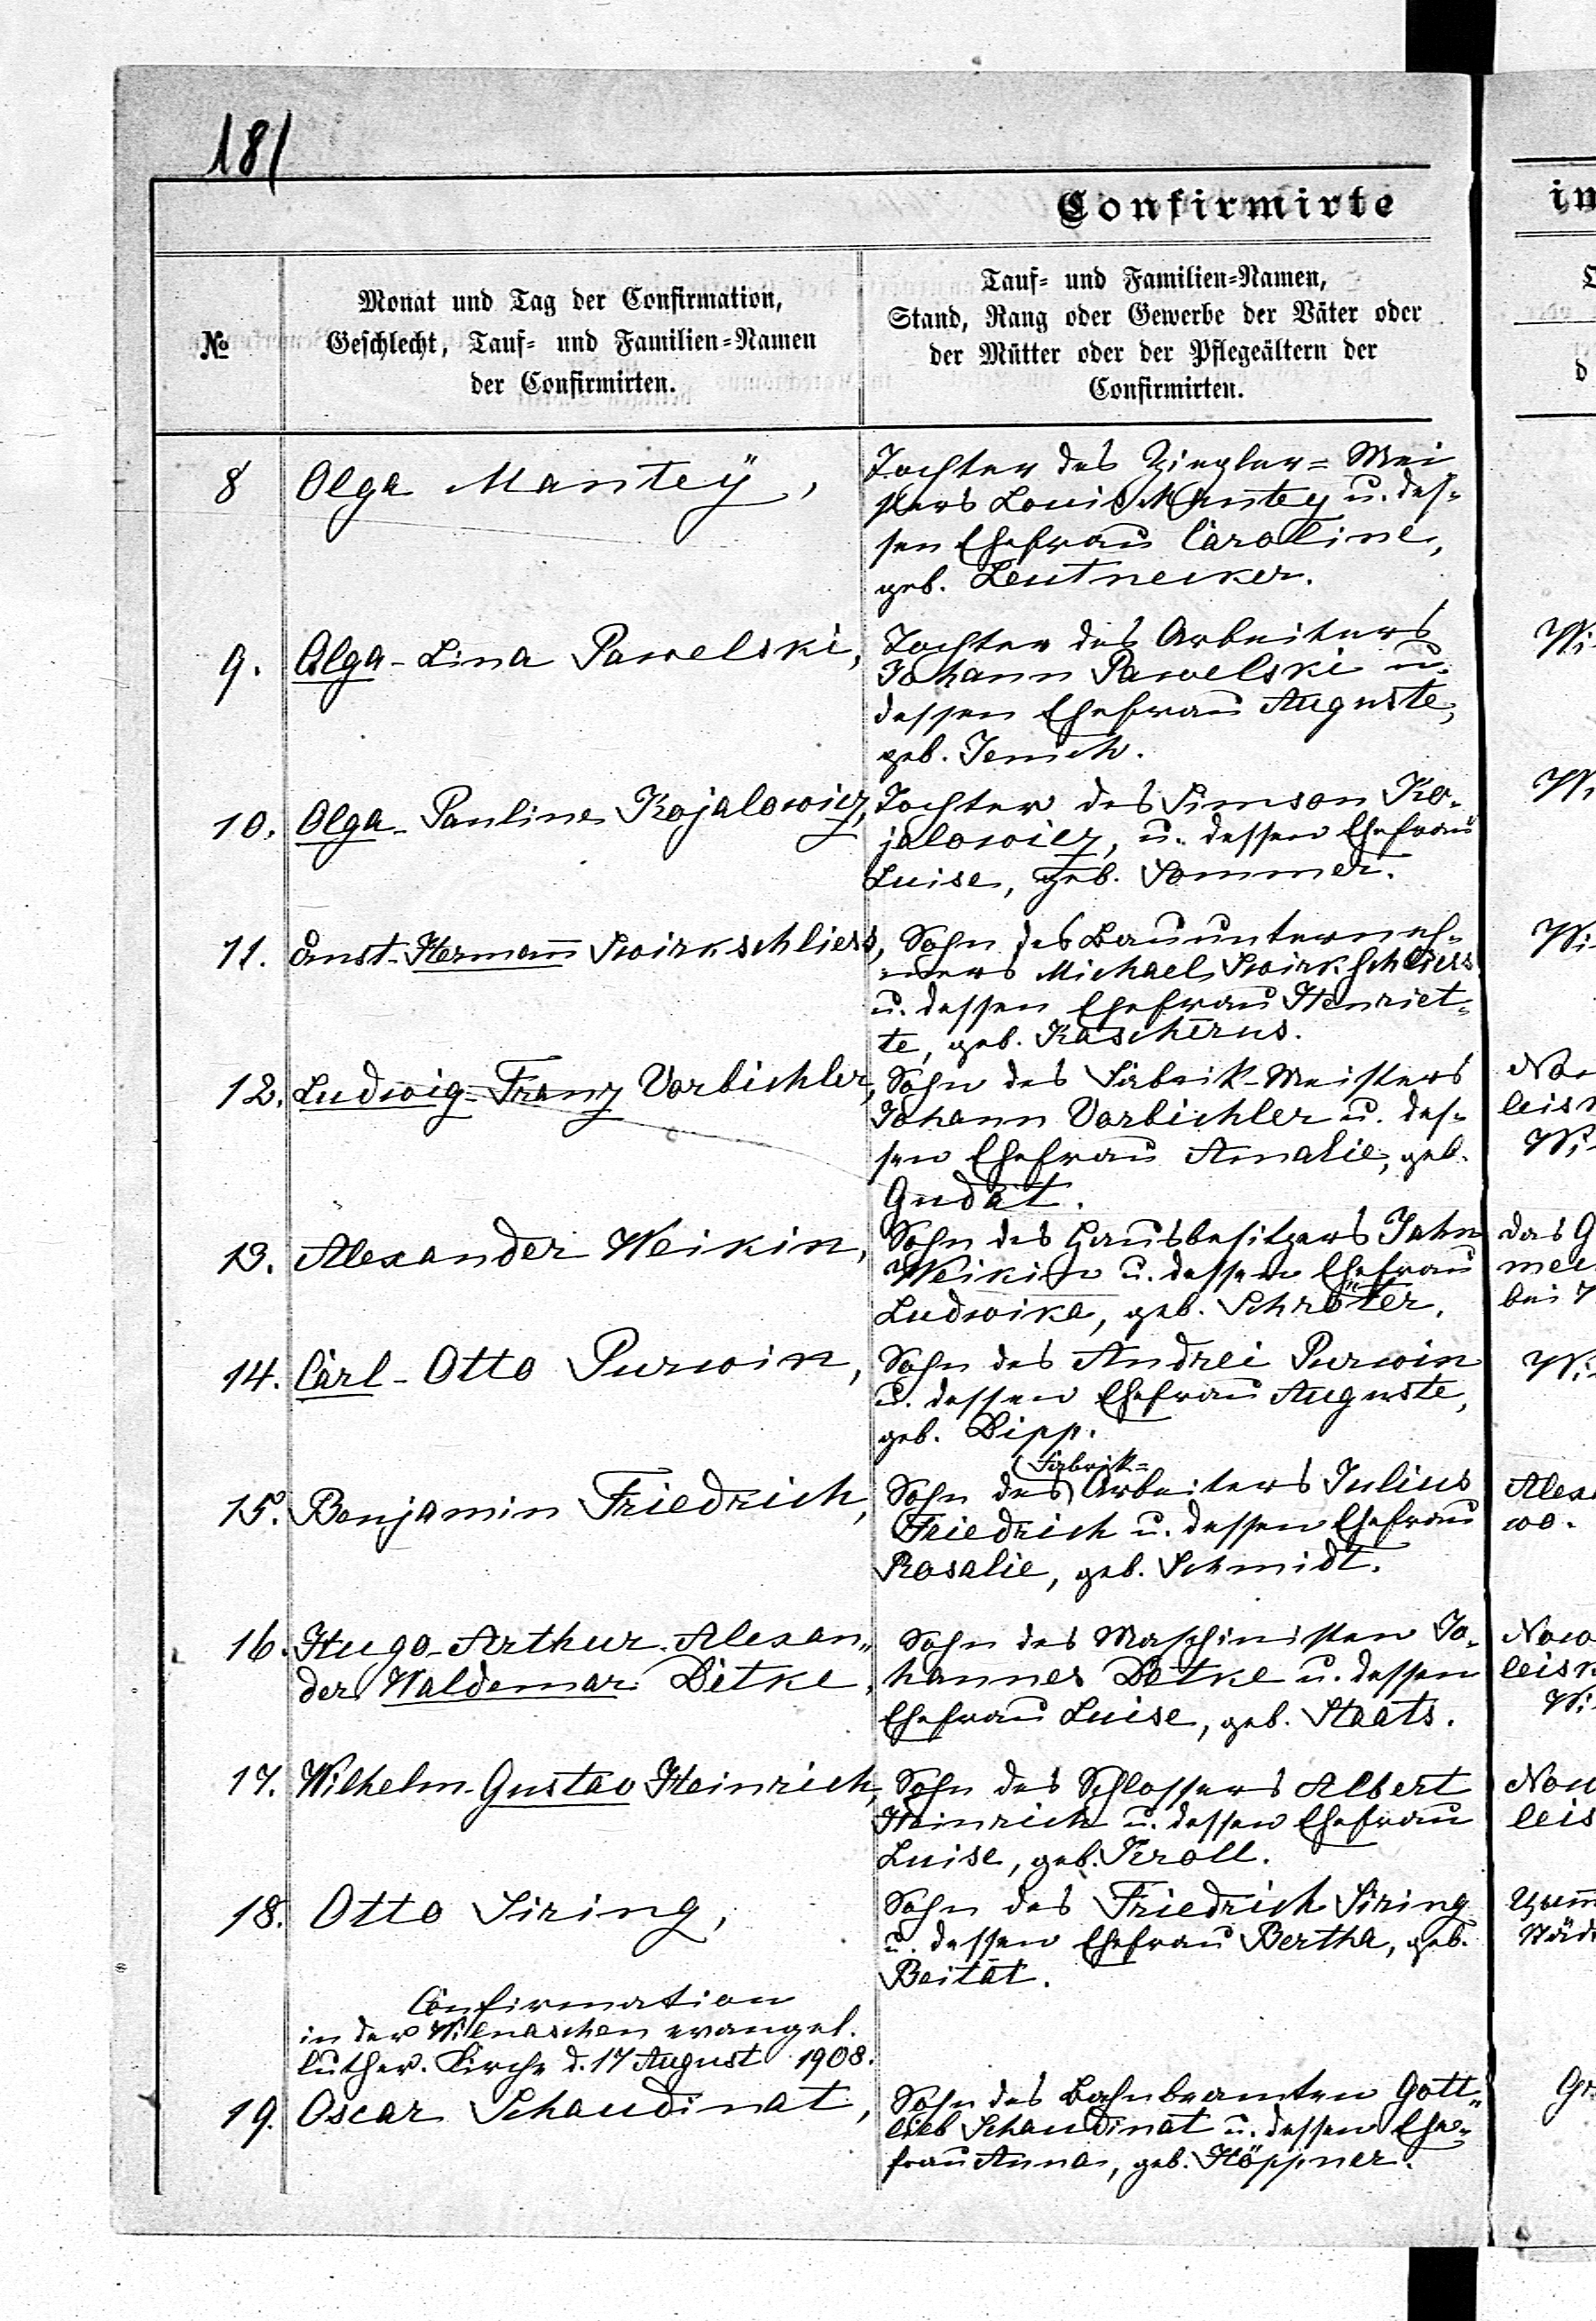 181
Confirmirte
№
Monat und Tag der Confirmation,
Geschlecht, Tauf- und Familien-Namen
der Confirmirten.
Tauf- und Familien-Namen,
Stand, Rang oder Gewerbe der Väter oder
der Mütter oder der Pflegeältern der
Confirmirten.
8 Olga Manteÿ,
Tochter des Ziegler-Mei
sters Louis Mantey u. des-
sen Ehefrau Caroline,
geb. Leutnecker.
9. Olga-Lina Pawelski,
Tochter des Arbeiters
Johann Pawelski u.
dessen Ehefrau Auguste,
geb. Jenich.
10. Olga-Pauline Kojalowicz,
Tochter des Simson Ko-
jalowicz, u. dessen Ehefrau
Luise, geb. Sommer.
11. Ernst-Hermann Swirkschliess,
Sohn des Bauunterneh-
mers Michael Swirkschliess
u. dessen Ehefrau Henriet-
te, geb. Kascherus.
12. Ludwig-Franz Vorbichler,
Sohn des Fabrik-Meisters
Johann Vorbichler u. des-
sen Ehefrau Amalie, geb.
Gudat.
13. Alexander Weikin,
Sohn des Hausbesitzers Jahn
Weikin u. dessen Ehefrau
Ludwika, geb. Schröter.
14. Carl-Otto Purwin,
Sohn des Andrei Purwin
u. dessen Ehefrau Auguste,
geb. Lipp.
15. Benjamin Friedrich,
Fabrik-
Sohn des Arbeiters Julius
Friedrich u. dessen Ehefrau
Rosalie, geb. Schmidt.
16. Hugo-Arthur-Alexan-
der Waldemar Ditke,
Sohn des Maschinisten Jo-
hannes Ditke u. dessen
Ehefrau Luise, geb. Staats.
17. Wilhelm-Gustav Heinrich,
Sohn des Schlossers Albert
Heinrich u. dessen Ehefrau
Luise, geb. Kroll.
18. Otto Siring,
Sohn des Friedrich Siring
u. dessen Ehefrau Bertha, geb.
Beitat.
Confirmation
in der Wilnaschen evangel.
luther. Kirche d. 17 August 1908.
19. Oscar Schaudinat,
Sohn des Bahnbeamten Gott-
lieb Schaudinat u. dessen Ehe-
frau Anna, geb. Höppner.